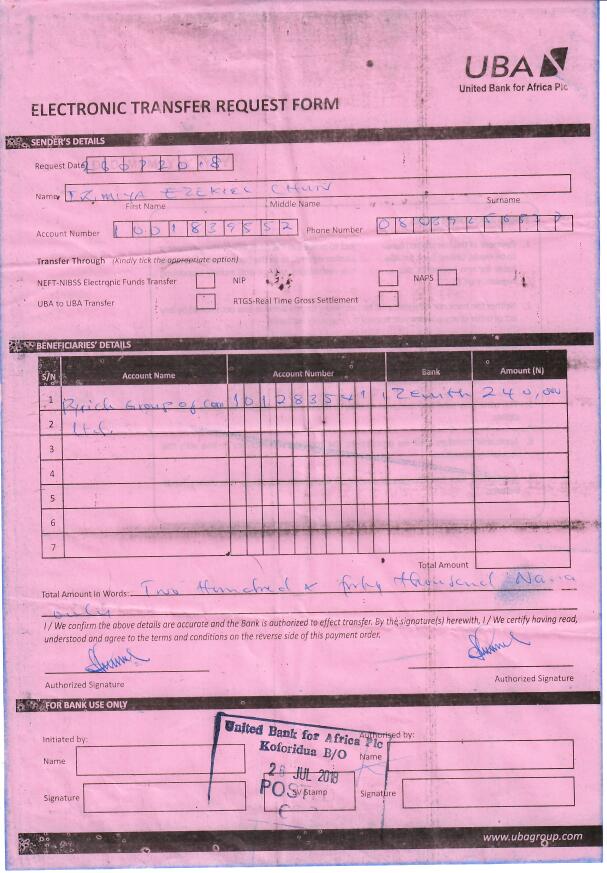 UBA
United Bank for Africa Plc
ELECTRONIC TRANSFER REQUEST FORM
SENDER'S DETAILS
Request Date 26072018
Name EZEKIEL
First Name Middle Name Surname
Account Number 1001839552 Phone Number
Transfer Through (Kindly tick the appropriate option)
NEFT-NIBSS Electronic Funds Transfer NIP NAPS
UBA to UBA Transfer RTGS-Real Time Gross Settlement
BENEFICIARIES' DETAILS
S/N Account Name Account Number Bank Amount (N)
1 Group of 1012835411 Zenith 240,000
2 Ltd.
3
4
5
6
7
Total Amount
Total Amount in Words: Two Hundred & forty thousand Naira
only
I / We confirm the above details are accurate and the Bank is authorized to effect transfer. By the signature(s) herewith, I / We certify having read,
understood and agree to the terms and conditions on the reverse side of this payment order.
Authorized Signature Authorized Signature
FOR BANK USE ONLY
Initiated by: Authorised by:
Name Name
Signature Signature
United Bank for Africa Plc
Koforidua B/O
26 JUL 2018
Stamp
www.ubagroup.com